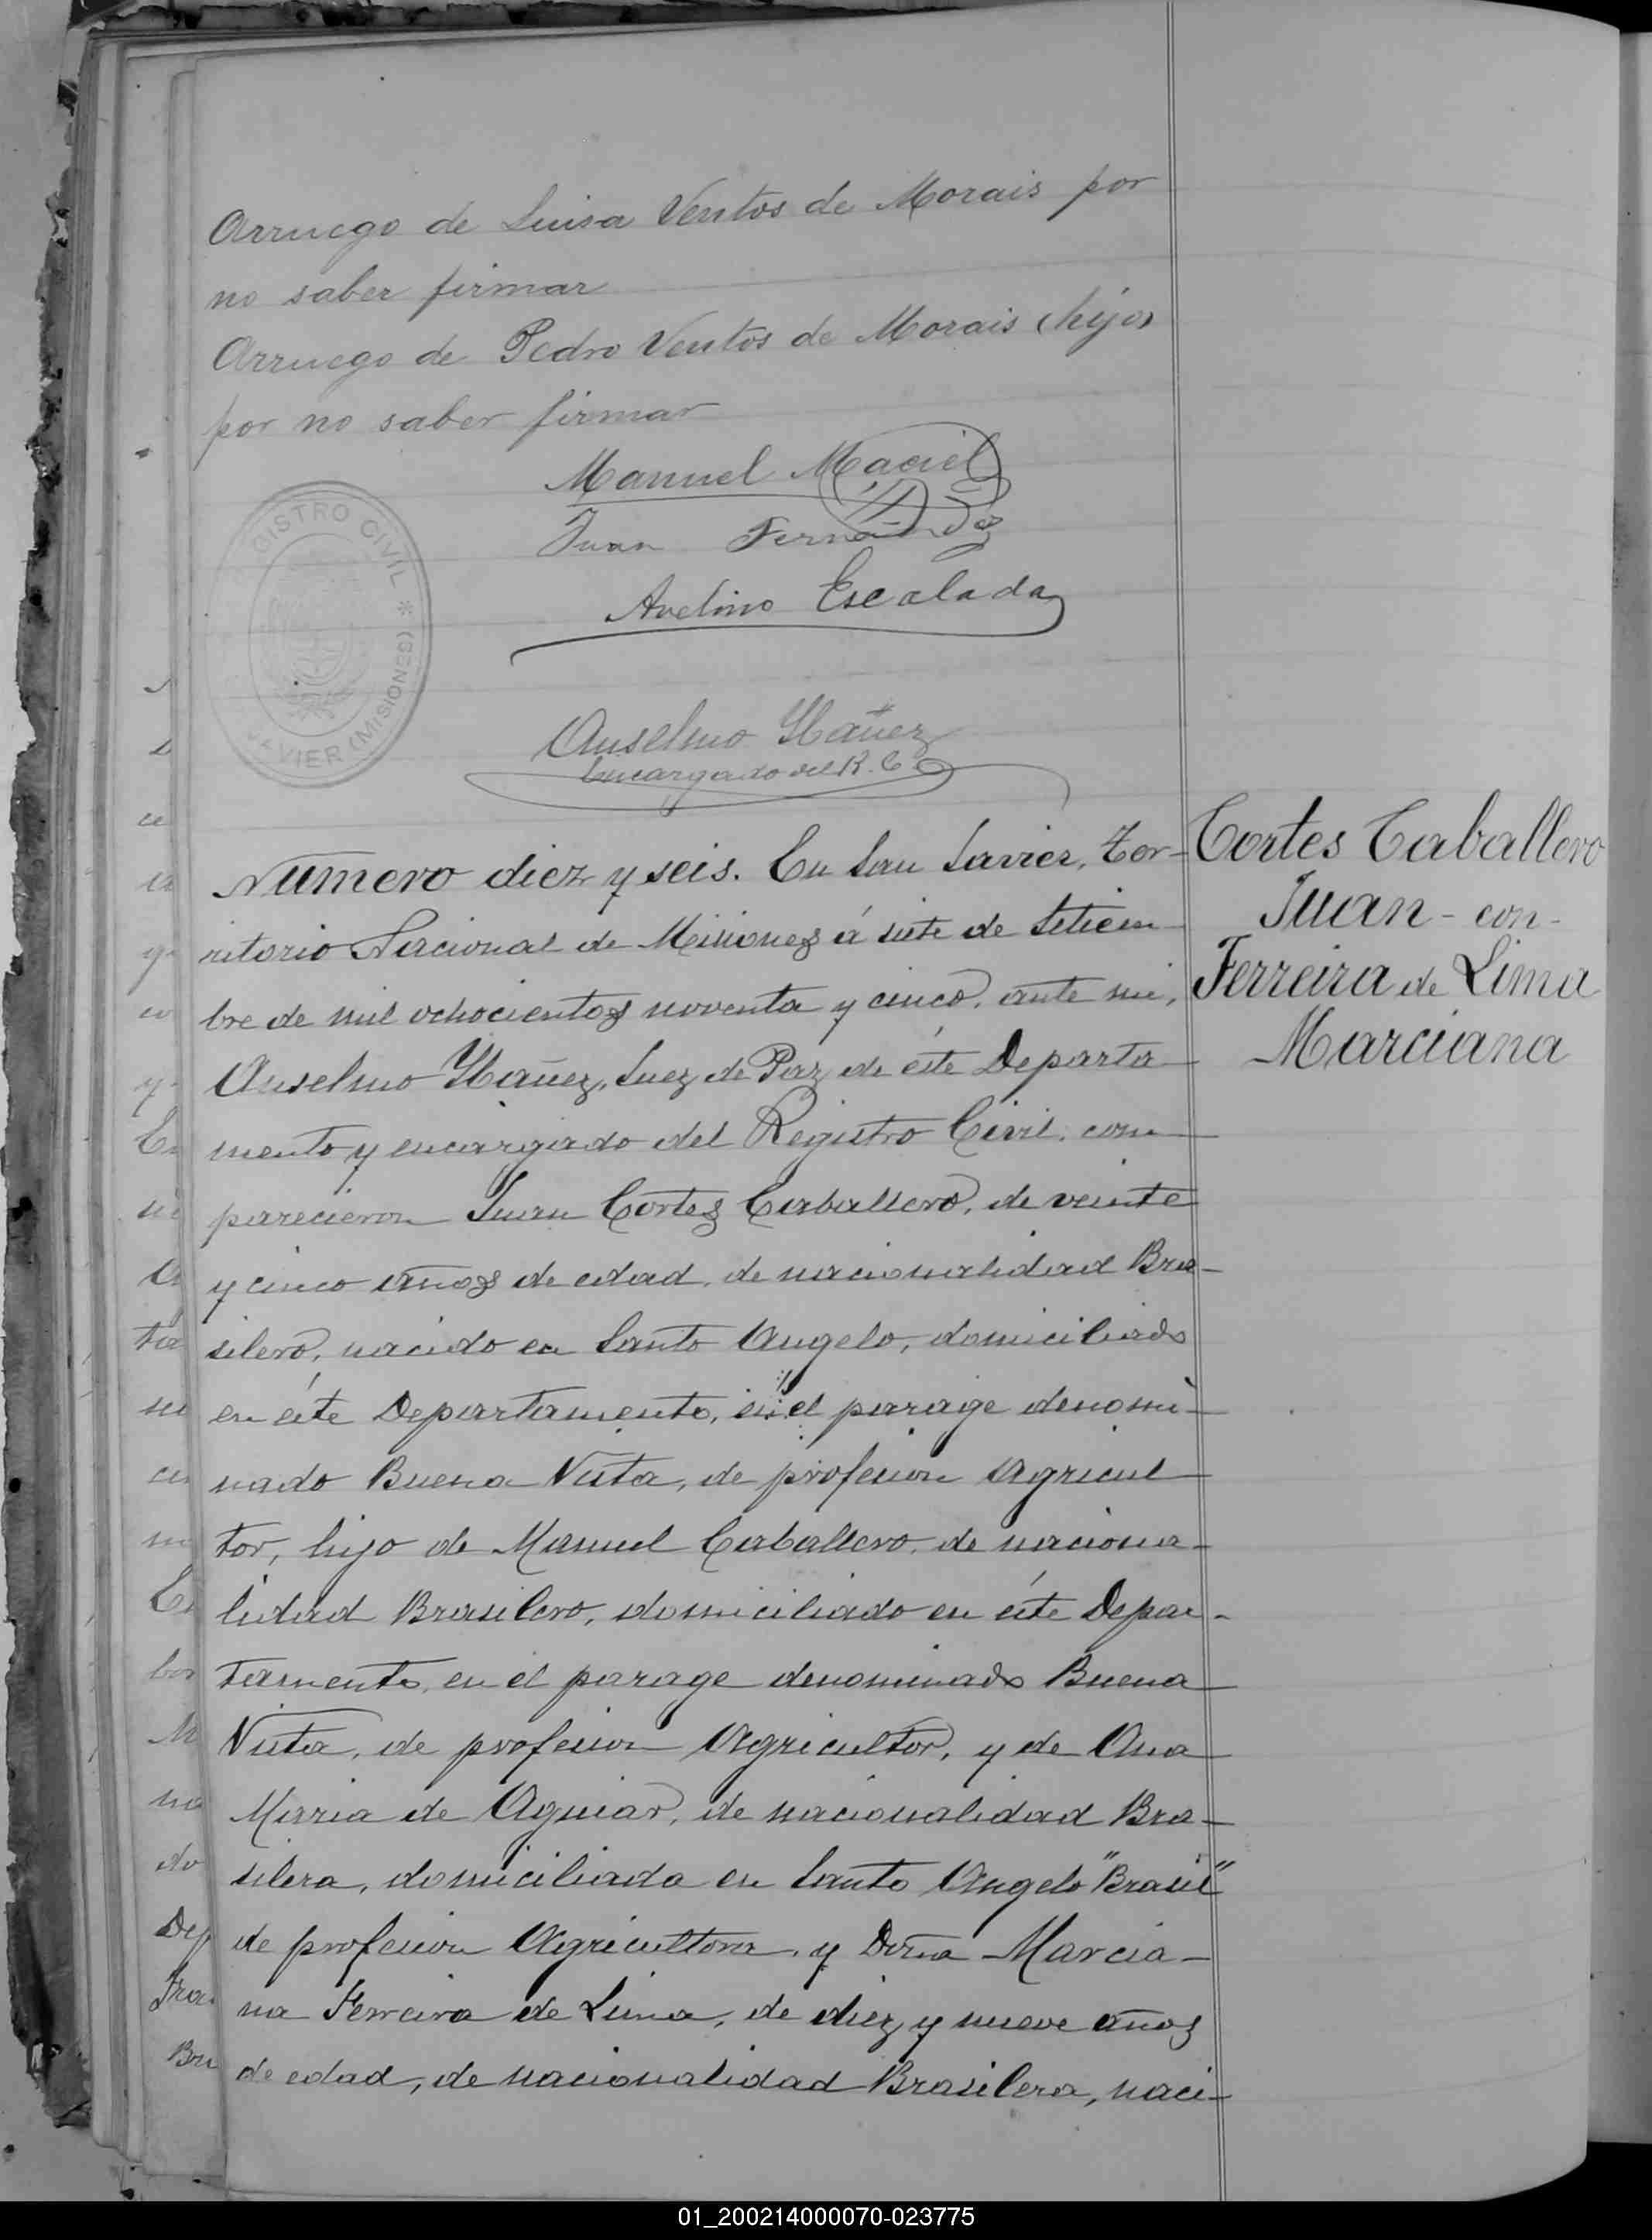 Arruego de Luisa Ventos de Morais por
no saber firmar
Arruego de Pedro Ventos de Morais (hijo)
por no saber firmar
Manuel Maciel
Juan Fernández
Avelino Escalada
REGISTRO CIVIL * JAVIER (MISIONES)
Anselmo Ybañez
Encargado del R. C.
Cortes Caballero
Juan - con -
Ferreira de Lima
Marciana
Número diez y seis. En San Javier, Ter-
ritorio Nacional de Misiones á siete de Setiem-
bre de mil ochocientos noventa y cinco, ante mi,
Anselmo Ybañez, Juez de Paz de éste Departa
mento y encargado del Registro Civil, com
parecieron Juan Cortes Caballero, de veinte
y cinco años de edad, de nacionalidad Bra-
silero, nacido en Santo Angelo, domiciliado
en éste Departamento, en el parage denomi-
nado Buena Vista, de profesion Agricul
tor, hijo de Manuel Caballero, de naciona-
lidad Brasilero, domiciliado en éste Depar-
tamento, en el parage denominado Buena
Vista, de profesion Agricultor, y de Ana
Maria de Aguiar, de nacionalidad Bra-
silera, domiciliada en Santo Angelo "Brasil"
de profesion Agricultora, y Doña Marcia-
na Ferreira de Lima, de diez y nueve años
de edad, de nacionalidad Brasilera, naci-
01_200214000070-023775